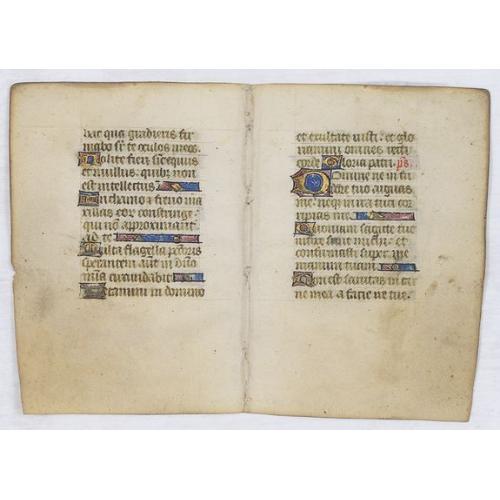 hac qua gradieris fir
mabo sr te oculos meos.
Nolite fieri sicut equus
et mullus quibz non
est intellectus
In chamo et freno ma
xillas eor constringe
qui nō approximant
ad te
Multa flagella pctōris
sperantem aut in dño
mīa circundabit
Letamini in domino
et exultate iusti et glo
riamini omnes recti
corde Gloria patri. ps.
Domine ne in fu
rore tuo arguas
me neqz in ira tua cor
ripias me
Quoniam sagitte tue
infixe sunt michi et
confirmasti super me
manum tuam
Non est sanitas in car
ne mea a facie ire tue